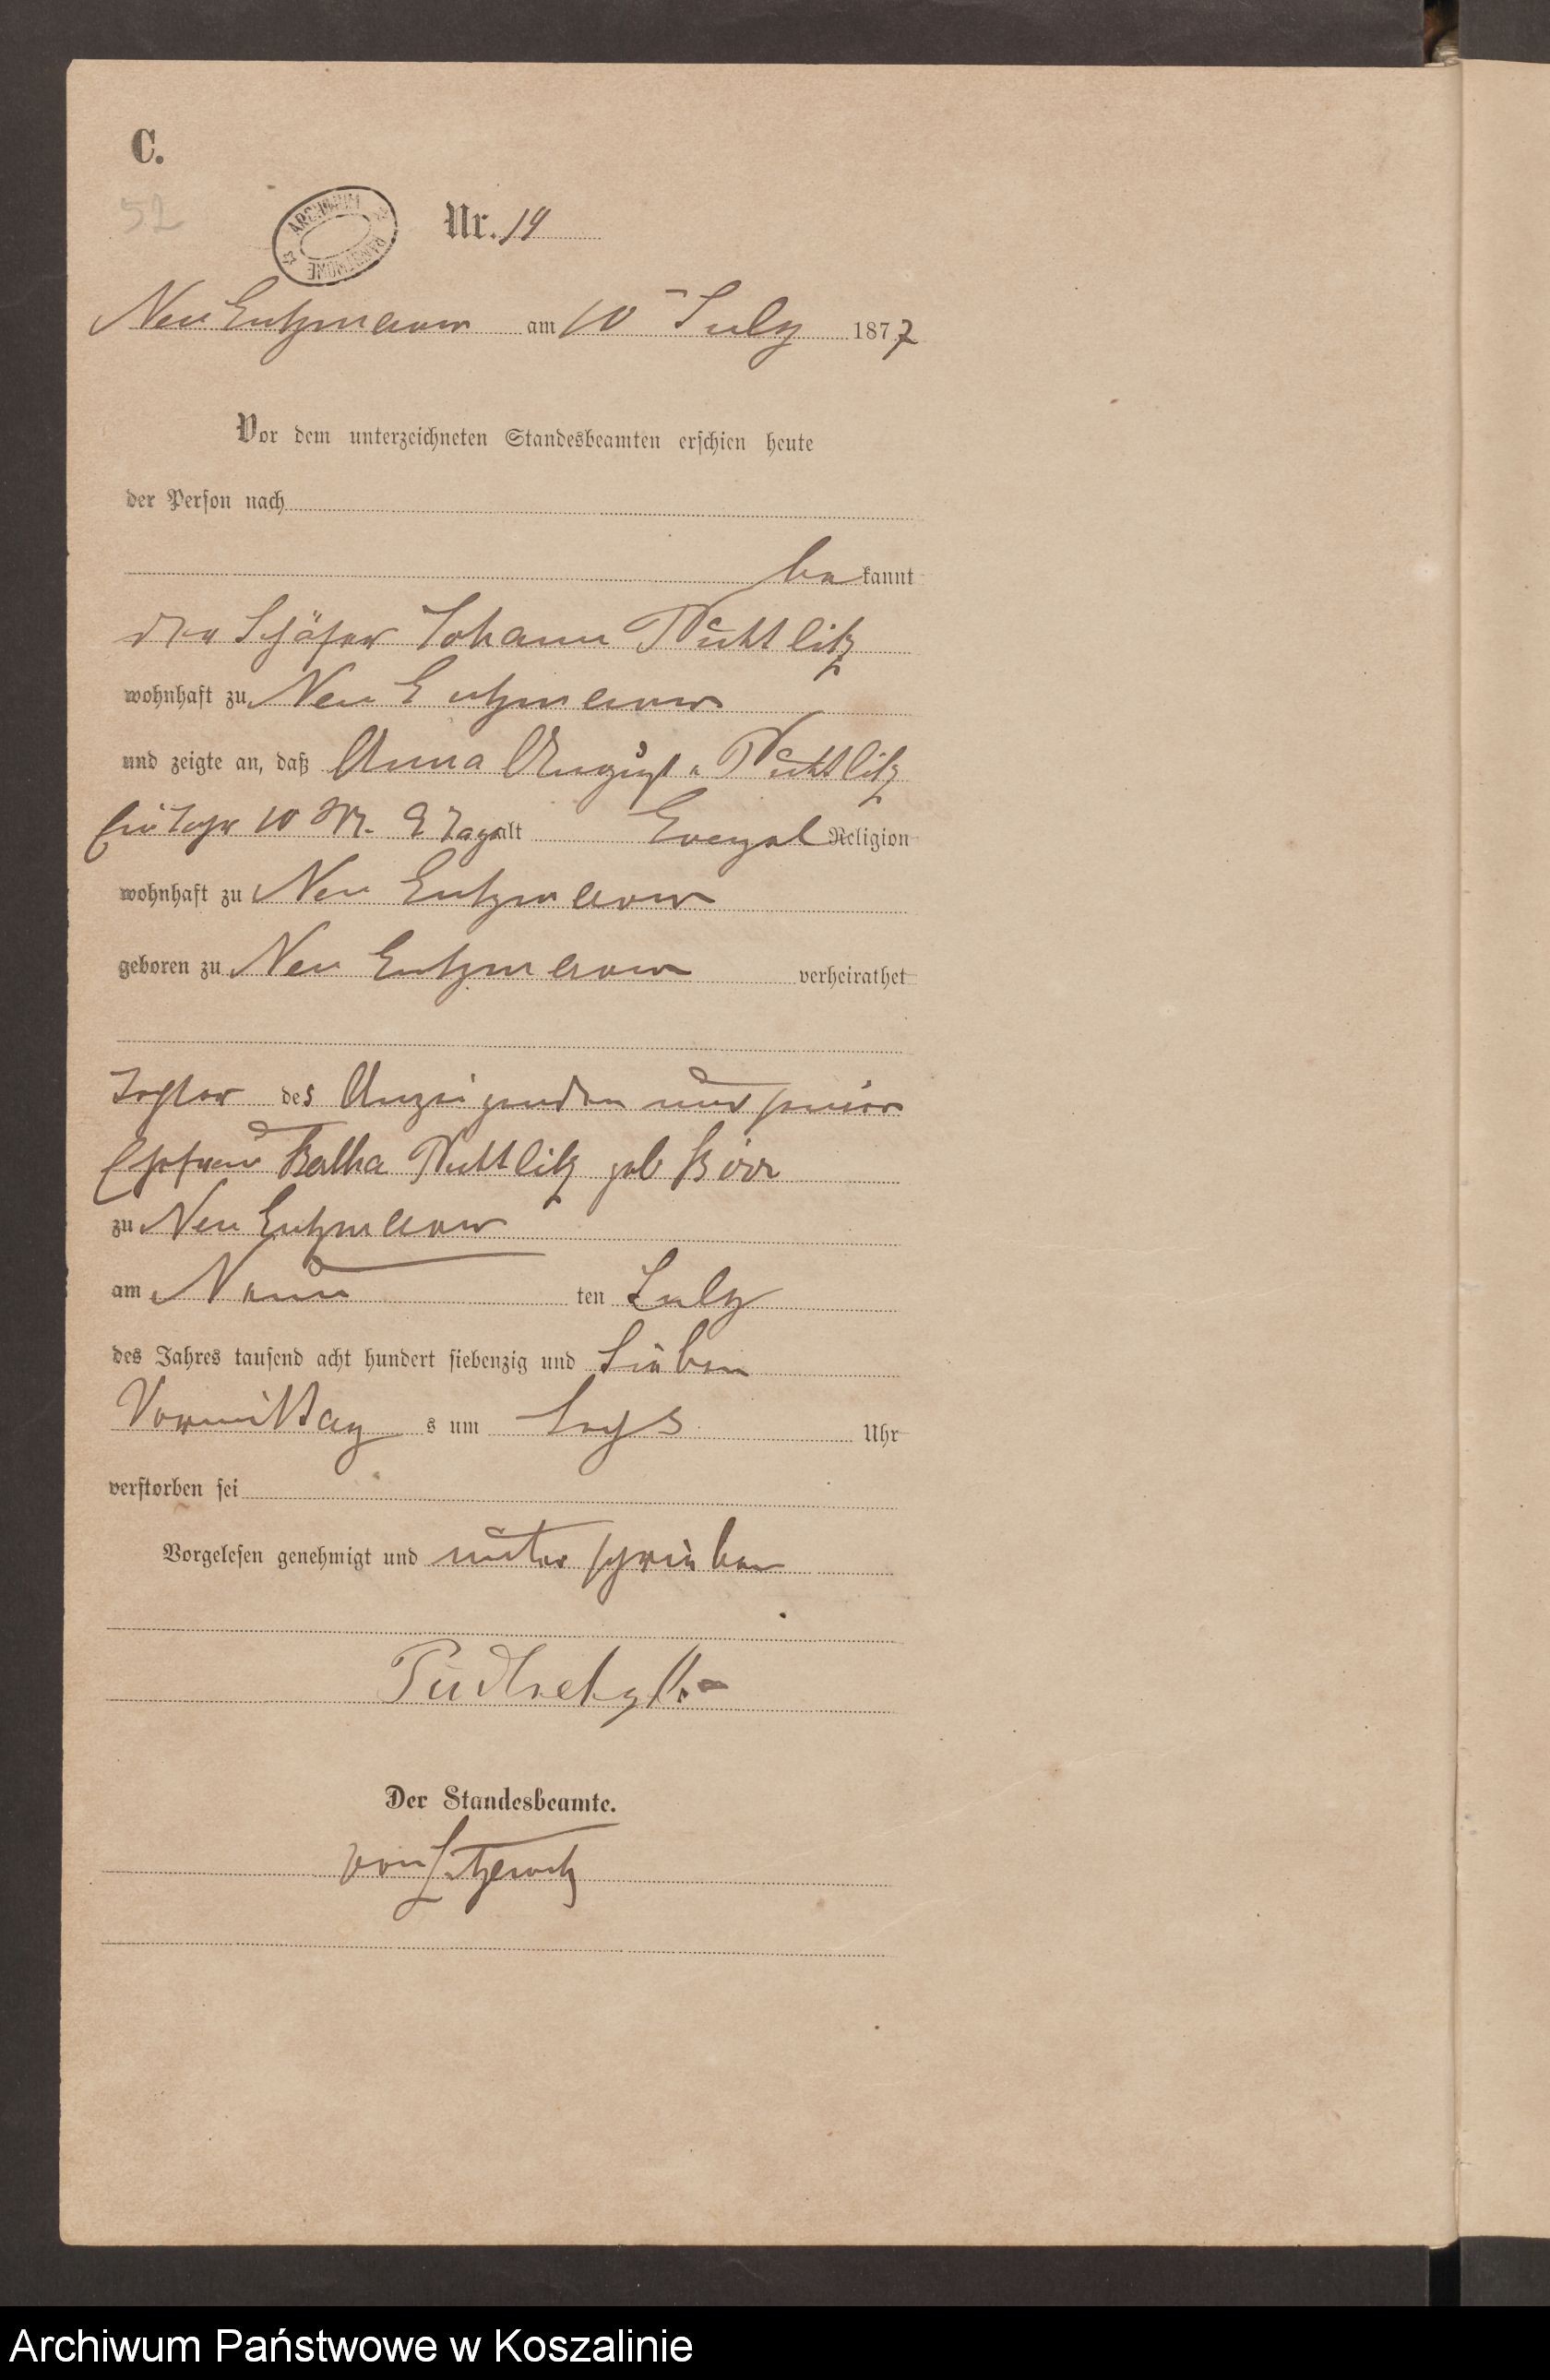 C.
52
ARCHIWUM PAŃSTWOWE
Nr. 19
Neu Gutzmerow am 10 July 1877
Vor dem unterzeichneten Standesbeamten erschien heute
der Person nach
be kannt
der Schäfer Johann
wohnhaft zu Neu Gutzmerow
und zeigte an, daß Anna August
Ein Jahr 10 M. 9 Tage alt Evangel Religion
wohnhaft zu Neu Gutzmerow
geboren zu Neu Gutzmerow verheirathet
Tochter des Anzeigenden und seiner
Ehefrau geb
zu Neu Gutzmerow
am Neun ten July
des Jahres tausend acht hundert siebenzig und Sieben
Vormittag s um Sechs Uhr
verstorben sei
Vorgelesen genehmigt und unterschrieben
Der Standesbeamte.
von
Archiwum Państwowe w Koszalinie